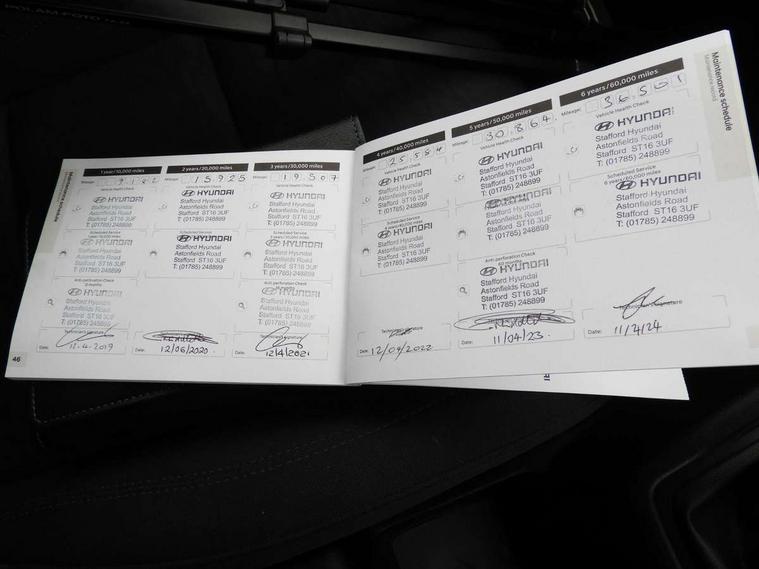 Maintenance schedule
1 year/10,000 miles
Mileage:
Vehicle Health Check
HYUNDAI
Stafford Hyundai
Astonfields Road
Stafford ST16 3UF
T: (01785) 248899
HYUNDAI
Stafford Hyundai
Astonfields Road
Stafford ST16 3UF
T: (01785) 248899
Anti-perforation Check
HYUNDAI
Stafford Hyundai
Astonfields Road
Stafford ST16 3UF
T: (01785) 248899
Technician signature
Date: 12.4.2019
46
2 years/20,000 miles
Mileage: 15,925
Vehicle Health Check
HYUNDAI
Stafford Hyundai
Astonfields Road
Stafford ST16 3UF
T: (01785) 248899
Scheduled Service
HYUNDAI
Stafford Hyundai
Astonfields Road
Stafford ST16 3UF
T: (01785) 248899
Date: 12/06/2020
3 years/30,000 miles
Mileage: 19,507
Vehicle Health Check
HYUNDAI
Stafford Hyundai
Astonfields Road
Stafford ST16 3UF
T: (01785) 248899
Scheduled Service
HYUNDAI
Stafford Hyundai
Astonfields Road
Stafford ST16 3UF
T: (01785) 248899
Anti-perforation Check
HYUNDAI
Stafford Hyundai
Astonfields Road
Stafford ST16 3UF
T: (01785) 248899
Technician signature
Date: 12/4/2021
4 years/40,000 miles
Mileage: 25,554
Vehicle Health Check
HYUNDAI
Stafford Hyundai
Astonfields Road
Stafford ST16 3UF
T: (01785) 248899
Scheduled Service
HYUNDAI
Stafford Hyundai
Astonfields Road
Stafford ST16 3UF
T: (01785) 248899
Technician signature
Date: 12/04/2022
5 years/50,000 miles
Mileage: 30,864
Vehicle Health Check
HYUNDAI
Stafford Hyundai
Astonfields Road
Stafford ST16 3UF
T: (01785) 248899
HYUNDAI
Stafford Hyundai
Astonfields Road
Stafford ST16 3UF
T: (01785) 248899
Anti-perforation Check
60 months
HYUNDAI
Stafford Hyundai
Astonfields Road
Stafford ST16 3UF
T: (01785) 248899
Date: 11/04/23.
6 years/60,000 miles
Mileage: 36,501
Vehicle Health Check
HYUNDAI
Stafford Hyundai
Astonfields Road
Stafford ST16 3UF
T: (01785) 248899
Scheduled Service
6 years/60,000 miles
HYUNDAI
Stafford Hyundai
Astonfields Road
Stafford ST16 3UF
T: (01785) 248899
Technician signature
Date: 11/4/24
Maintenance schedule
Maintenance record